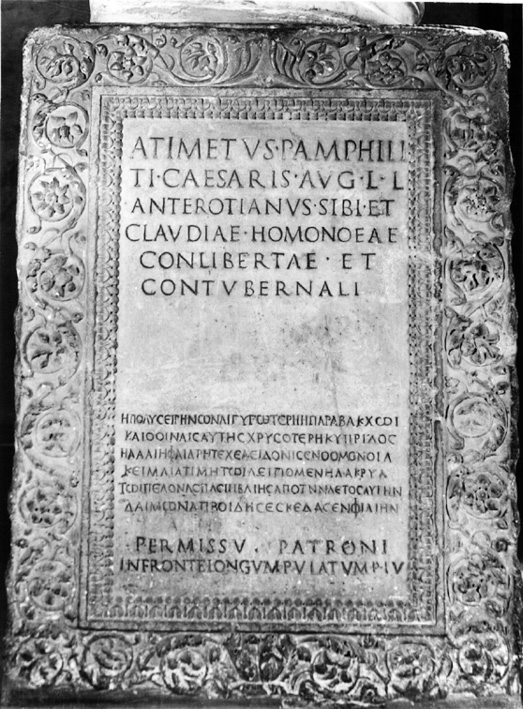 ATIMETVS·PAMPHILI
TI·CAESARIS·AVG·L·L
ANTEROTIANVS·SIBI·ET
CLAVDIAE·HOMONOEAE
CONLIBERTAE·ET
CONTVBERNALI
ΗΠΟΛΥΣΕΙΡΗΝΩΝΛΙΓΥΡΩΤΕΡΗΗΠΑΡΑΒΑΚΧΩΙ
ΚΑΙΘΟΙΝΑΙΣΑΥΤΗΣΧΡΥΣΟΤΕΡΗΚΥΠΡΙΔΟΣ
ΗΛΑΛΙΗΦΑΙΔΡΗΤΕΧΕΛΕΙΔΟΝΙΣΕΝΘΟΜΟΝΟΙΑ
ΚΕΙΜΑΙΑΤΙΜΗΤΩΙΛΕΙΠΟΜΕΝΗΔΑΚΡΥΑ
ΤΩΙΠΕΛΟΝΑΣΠΑΣΙΗΒΑΙΗΣΑΠΟΤΗΝΔΕΤΟΣΑΥΤΗΝ
ΔΑΙΜΩΝΑΠΡΟΙΔΗΣΕΣΚΕΔΑΣΕΝΦΙΛΙΗΝ
PERMISSV·PATRONI
INFRONTELONGVM·P·V·LATVM·P·IV